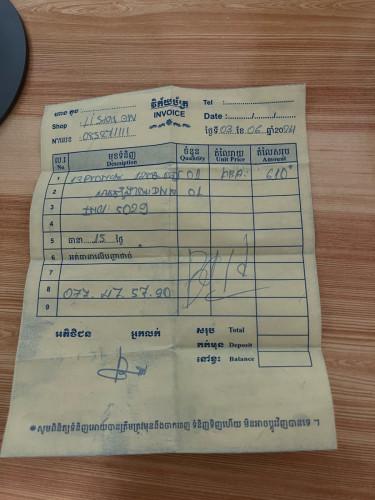 ហាង តូប
វិក្កយបត្រ
Tel :
Shop LISIANON
INVOICE
Date :........./........./.........
ថ្ងៃទី 03 ខែ 06 ឆ្នាំ2024
ល.រ មុខទំនិញ ចំនួន តំលៃរាយ តំលៃសរុប
No Description Quantity Unit Price Amount
1 13 PROMAX 01 610
2 01
3 IMEI: 5029
4
5 ធានា 15 ថ្ងៃ
6
7
8 077. 47. 57. 90
9
អតិថិជន អ្នកលក់ សរុប Total
កក់មុន Deposit
នៅខ្វះ Balance
សូមពិនិត្យទំនិញអោយបានត្រឹមត្រូវមុននឹងចាកចេញ ទំនិញទិញហើយ មិនអាចប្តូរវិញបានទេ ។